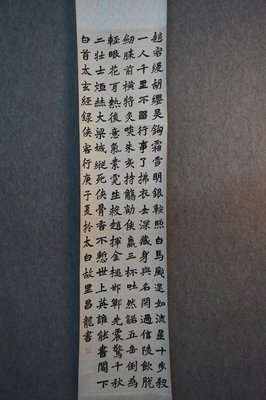 趙客縵胡纓吳鉤霜雪明銀鞍照白馬颯遝如流星十步殺
一人千里不留行事了拂衣去深藏身與名閑過信陵飲脫
劍膝前橫將炙啖朱亥持觴勸侯嬴三杯吐然諾五岳倒為
輕眼花耳熱後意氣素霓生救趙揮金槌邯鄲先震驚千秋
二壯士烜赫大梁城縱死俠骨香不慚世上英誰能書閣下
白首太玄經錄俠客行庚子夏於太白故里昌龍書